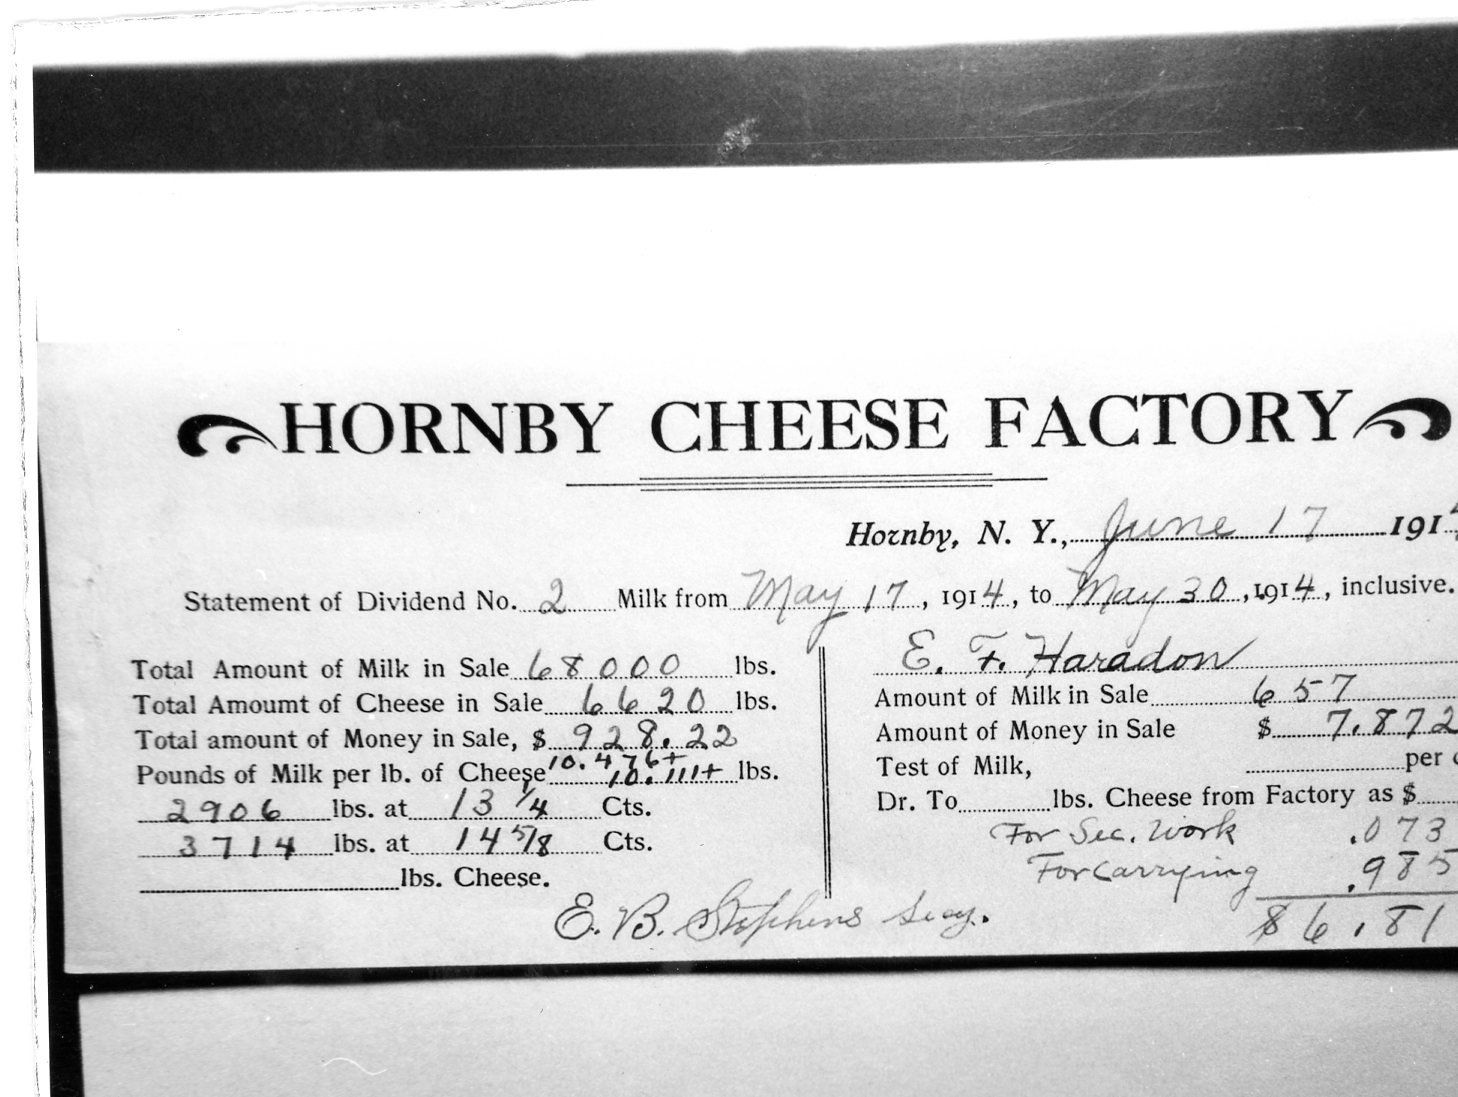 HORNBY CHEESE FACTORY
Hornby, N. Y., June 17 1914
Statement of Dividend No. 2 Milk from May 17, 1914, to May 30, 1914, inclusive.
Total Amount of Milk in Sale 68000 lbs.
Total Amoumt of Cheese in Sale 6620 lbs.
Total amount of Money in Sale, $ 928.22
Pounds of Milk per lb. of Cheese 10.476+ 10.111+ lbs.
2906 lbs. at 13 1/4 Cts.
3714 lbs. at 14 5/8 Cts.
lbs. Cheese.
E. F. Haradon
Amount of Milk in Sale 657
Amount of Money in Sale $ 7.872
Test of Milk, per
Dr. To lbs. Cheese from Factory as $
For Sec. Work .073
For Carrying .985
$6.81
E. B. Stephens Secy.